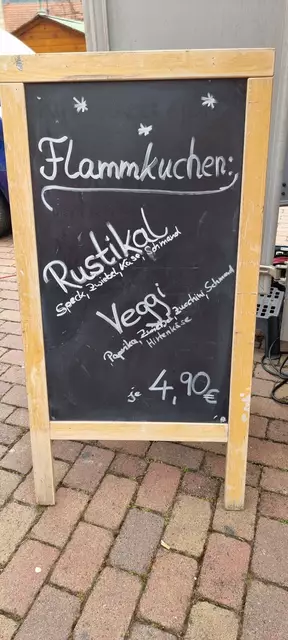 Flammkuchen:
Rustikal
Speck, Zwiebel, Käse, Schmand
Veggi
Paprika, Zwiebel, Zucchini, Schmand
Hirtenkäse
je 4,90€